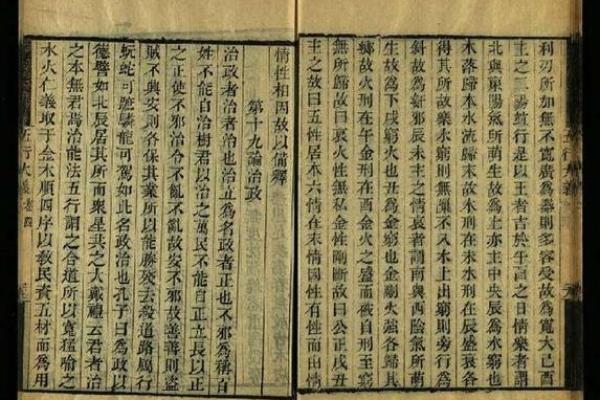 利刃所加無不寬廣為奏則多容受故為寬大己酉
主之二陽竝行是以王者吉於午酉之日情樂者謂
北與東陽氣所萌生故為上亦主中央辰為水窮也
木落歸本水流歸末故木刑在未水刑在辰盛衰各
得其所故樂水窮則無不入木上出窮則旁行為
斜故為姧邪辰未主之情哀者謂南與西陰氣所萌
生故為下戌窮火也丑為金窮也金剛火強各歸其
鄉故火刑在午金刑在酉金火之盛而被自刑至窮
無所歸故曰哀火性無私金性剛斷故曰公正戌丑
主之故曰五性居本六情在末情因性有性而由情
情性相因故以備釋
第十九論治政
治政者治者治也治立為名政者正也不邪為稱百
姓不能自治樹君以治之萬民不能自正立長以正
之正使不邪治令不亂不亂故安不邪故善善則盜
賊不興安則各保其業所以能勝殘去殺道路行
虺蛇可蹍麟龍可駕如此名政治也孔子曰為政以
德譬如北辰居其所而衆星共之大戴禮云君者治
之本無君焉治能法五行謂之合道所以寬猛喻之
水火仁義取于金木順四序以教民資五材而為用
五行大義 卷四